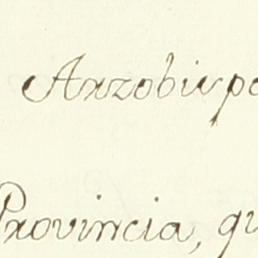 Arzobispo
Provincia, qu